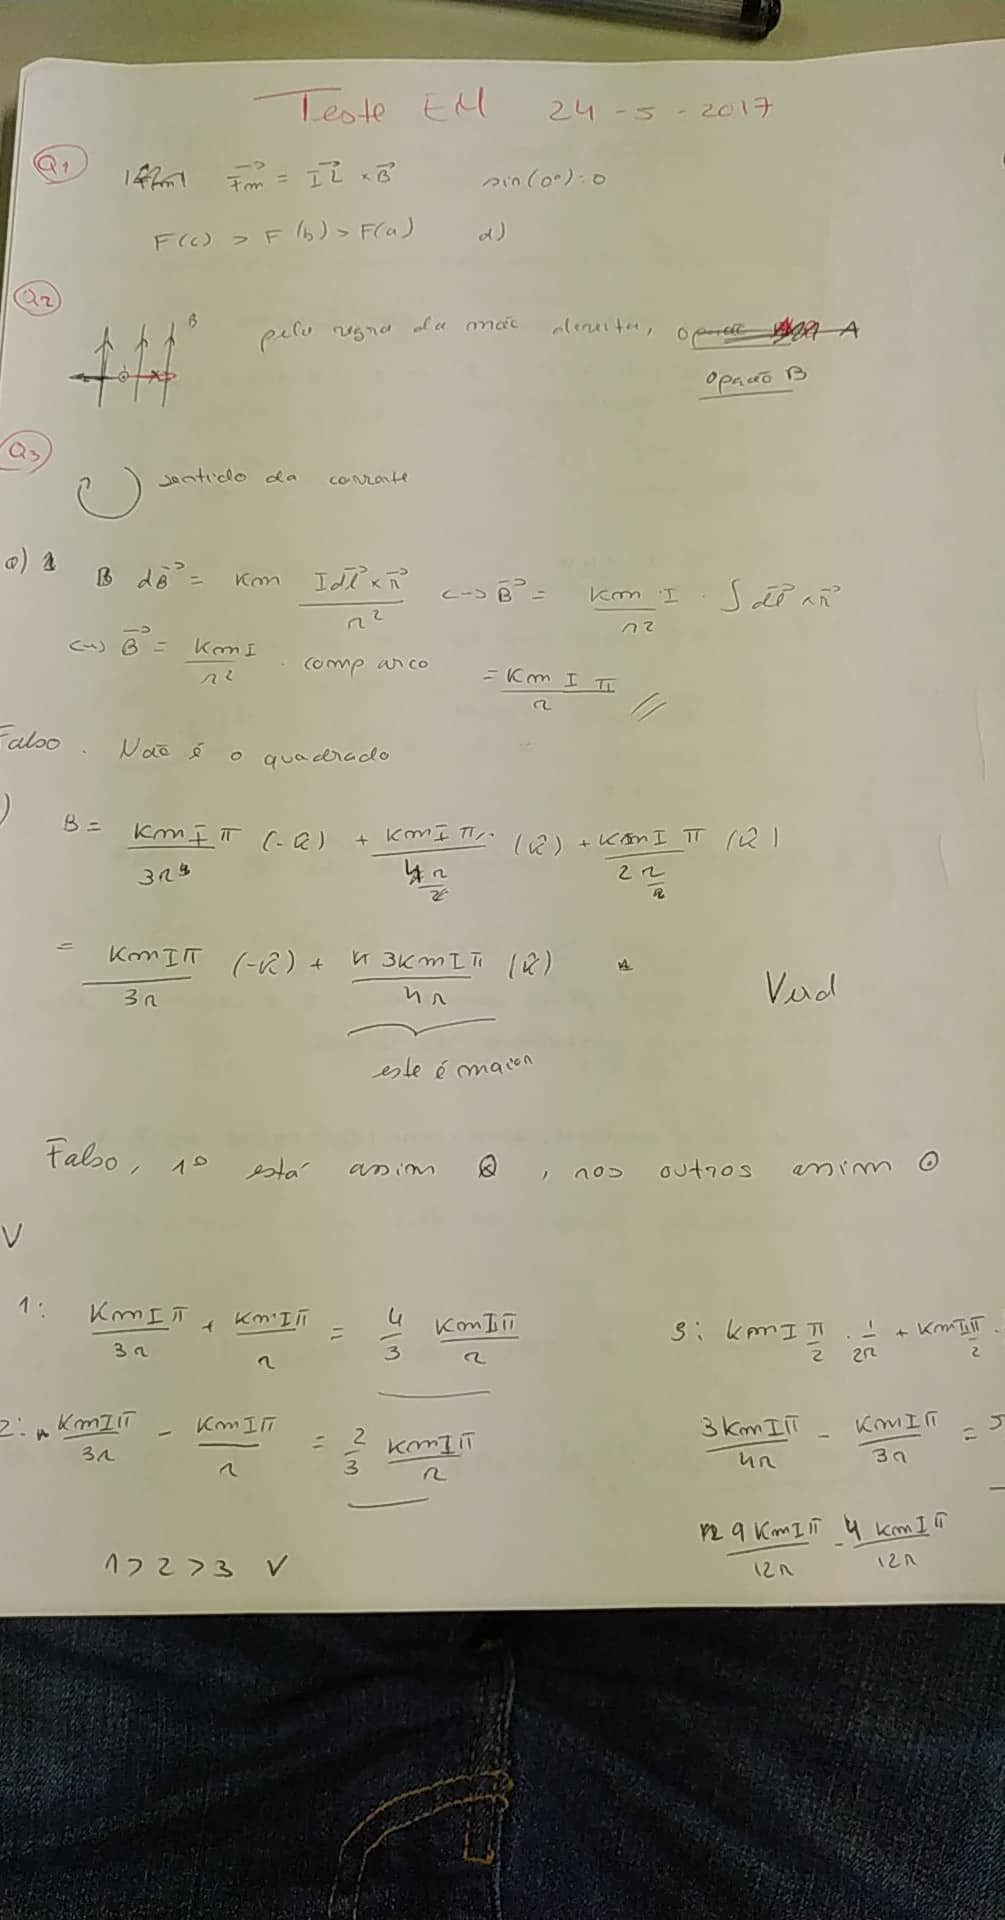 Teste EM 24-5-2017
Q1
Fm = I L × B sin(0°):0
F(c) > F(b) > F(a) d)
Q2
B pela regra da mão direita, opção A
opção B
Q3
sentido da corrente
a) 1
B dB = Km Idl × r / r² <-> B = Km I / r² · ∫ dl × r
<-> B = Km I / r² · comp arco = Km I π / r //
Falso. Não é o quadrado
) B = Km I π / 3r (-k) + Km I π / 4 r/2 (k) + Km I π / 2 r/2 (k)
= Km I π / 3r (-k) + 3 Km I π / 4r (k) Verd
este é maior
Falso, 1º está assim ⊗, nos outros assim ⊙
V
1: Km I π / 3r + Km I π / r = 4/3 Km I π / r 3: Km I π/2 · 1/2r + Km I π / 2 ·
2: Km I π / 3r - Km I π / r = 2/3 Km I π / r 3 Km I π / 4r - Km I π / 3r = 5
9 Km I π / 12r - 4 Km I π / 12r
1>2>3 V